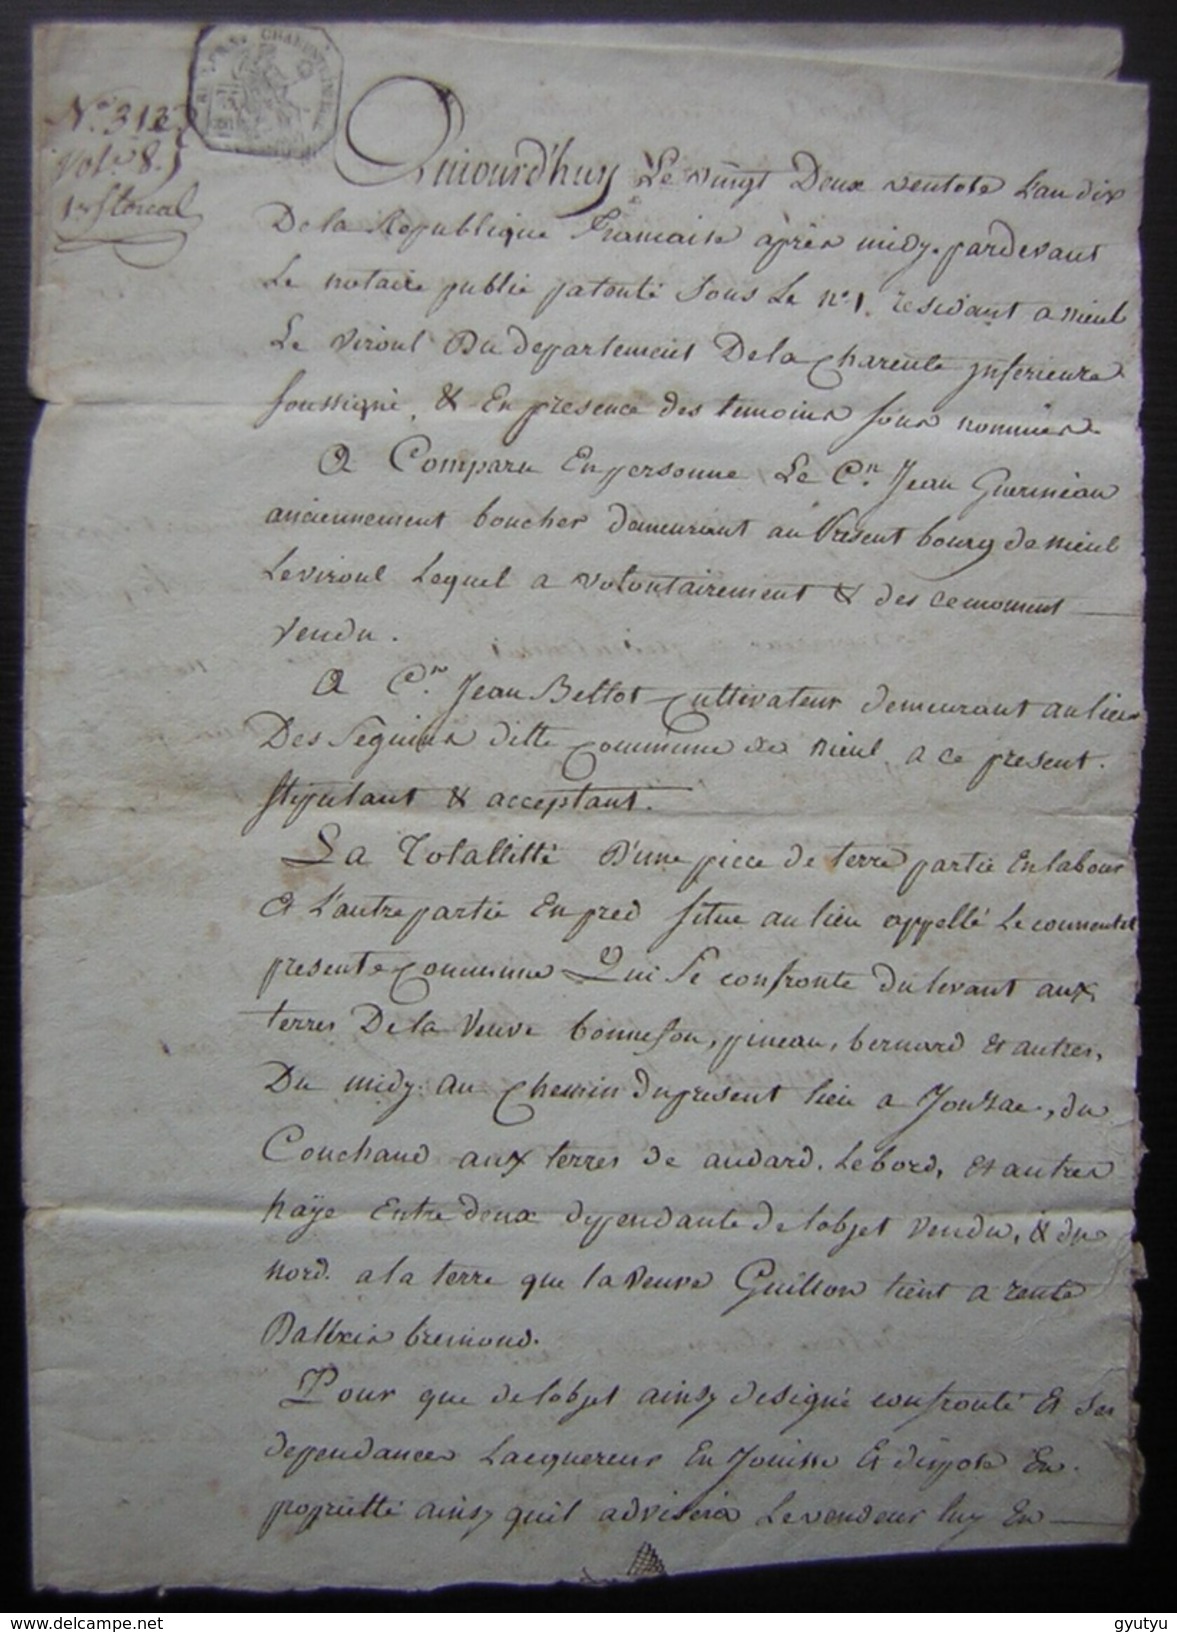 N.° 313
vol. 8.
1er floreal
Aujourd'huy Le vingt Deux ventose L'an dix
De la Republique Francaise après midy. pardevant
Le notaire publie patenté sous Le n°1. residant a nieul
Le viroul Du departement De la Charente jnferieure
soussigné, & En presence des temoins sous nommés
A Comparu En personne Le C.n Jean Guerineau
anciennement boucher demeurant au Present bourg de nieul
Leviroul Lequel a volontairement & des cemoment
vendu.
A C.n Jean Bellot Cultivateur demeurant au lieu
Des Seguins ditte Commune de nieul. a ce present.
stipulant & acceptant.
La Totallitté D'une piece de terre partie En labour
Et L'autre partie En pred situe au lieu appellé Le
presente Commune Qui Se confronte Du levant aux
terres De la Veuve bonneson, pineau, bernard et autres,
Du midy. au Chemin Du present lieu a Jonzac, du
Couchand aux terres de audard. Lebord, et autres
haÿe Entre deux deppendante de lobjet vendu, & du
nord. a la terre que la veuve Guillon tient a rente
bremond.
Pour que de lobjet ainsy designé confronté et ses
dependances Lacquereur En Jouisse Et dispose En
propriette ainsy quil advisera Le vendeur luy En
www.delcampe.net
gyutyu